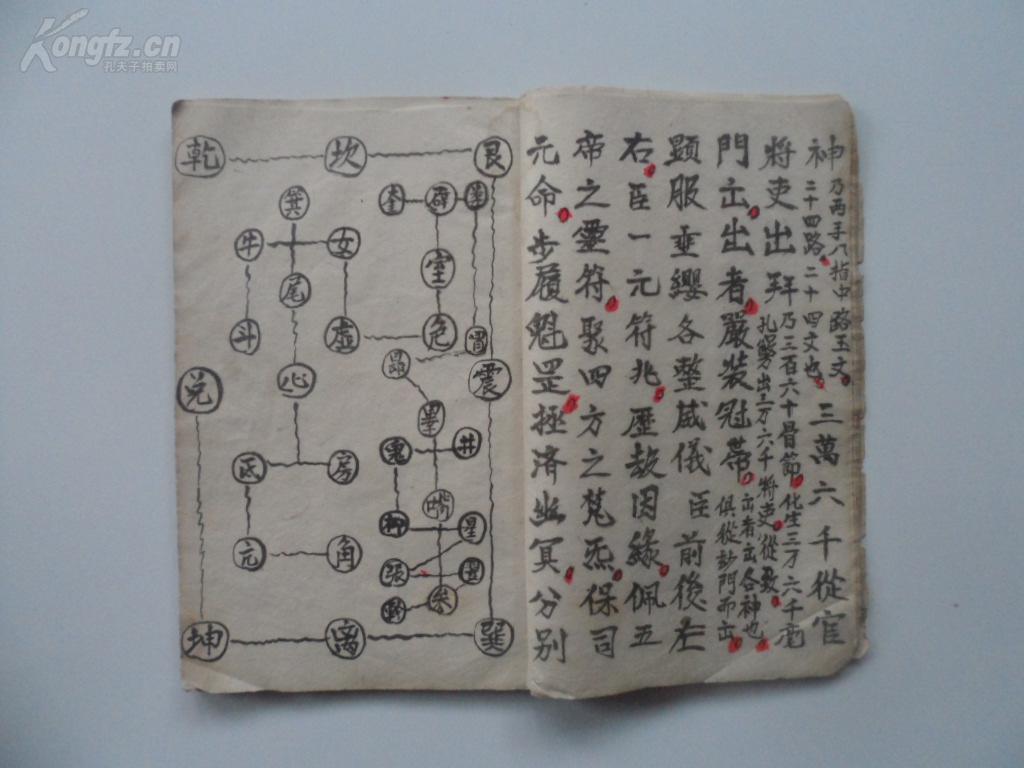 Kongfz.cn
孔夫子拍卖网
神乃兩手八指中路玉文二十四路二十四文也三萬六千從官
將吏出拜乃三百六十骨節化生三万六千毫孔竅出三万六千將吏從数
門出出者嚴裝冠帶出者出各神也俱從妙門而出
顕服垂纓各整威儀臣前後左
右臣一元符兆歷劫因緣佩五
帝之靈符聚四方之炁保司
元命步履魁罡拯济幽冥分别
乾 坎 艮
箕 奎 壁 娄
牛 女 室
尾
斗 虚 危 胃
昴
兑 心 震
畢
鬼 井
氐 房
觜
柳 星
亢 角 張 翌
軫 参
坤 离 巽